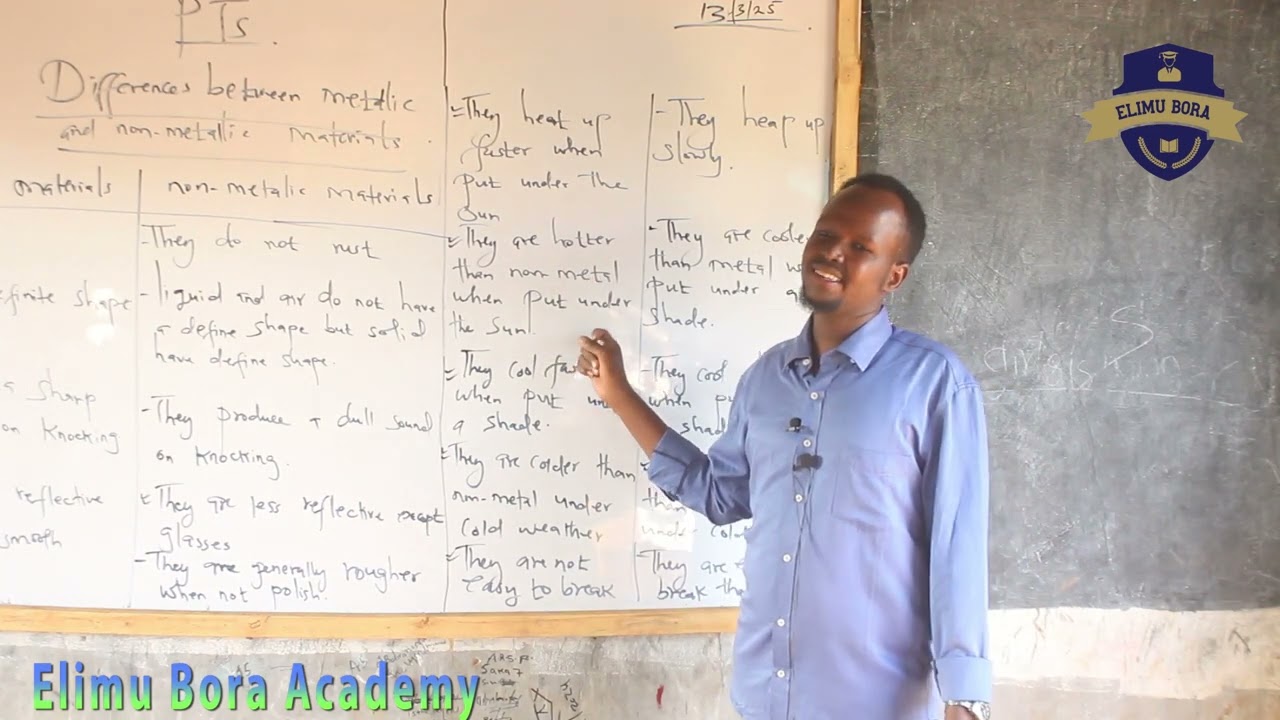 PTs.
13/3/25
Differences between metallic
and non-metallic materials.
materials
non-metalic materials
-They do not rust
-liquid and air do not have
a define shape but solid
have define shape.
-They produce a dull sound
on knocking.
They are less reflective except
glasses
-They are generally rougher
when not polish.
shape
a sharp
on knocking
reflective
smooth
They heat up
faster when
put under the
sun
They are hotter
than non-metal
when put under
the sun.
They cool
when put
a shade.
They are colder than
non-metal under
cold weather
They are not
easy to break
-They heap up
slowly.
-They are
than metal
put under a
shade.
-They cool
when
than
-They are
break
ELIMU BORA
Elimu Bora Academy